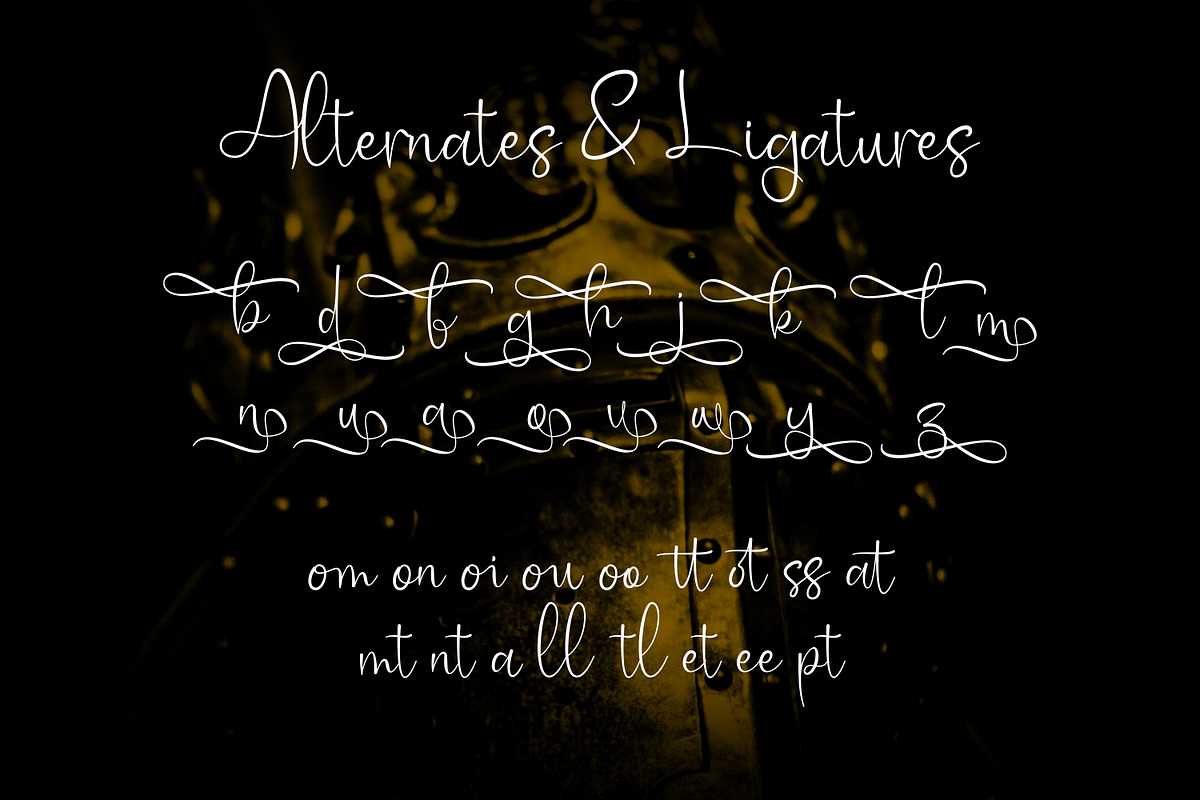 Alternates & Ligatures
b d f g h j k l m
n u a o v w y z
om on oi ou oo tt ot ss at
mt nt a ll tl et ee pt